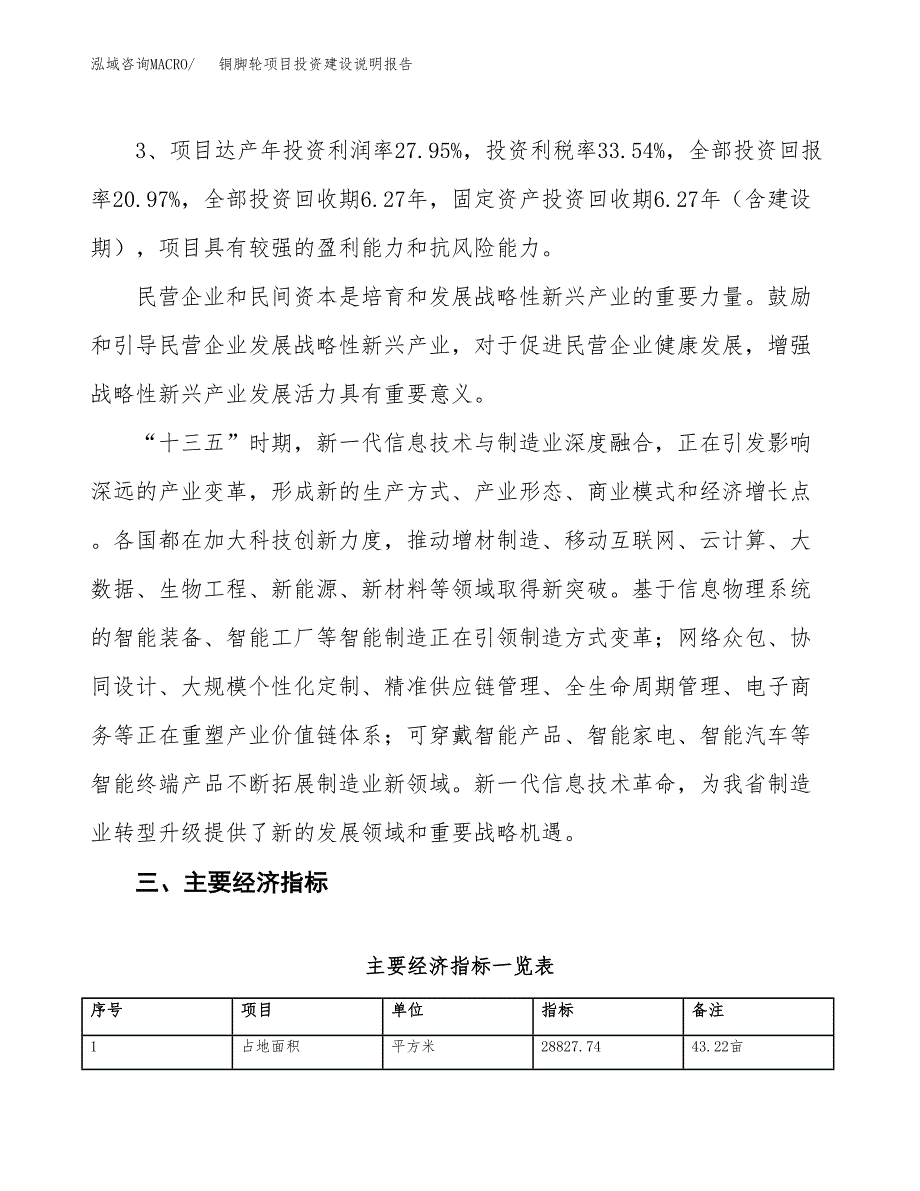 泓域咨询MACRO/ 铜脚轮项目投资建设说明报告
3、项目达产年投资利润率27.95%，投资利税率33.54%，全部投资回报
率20.97%，全部投资回收期6.27年，固定资产投资回收期6.27年（含建设
期），项目具有较强的盈利能力和抗风险能力。
民营企业和民间资本是培育和发展战略性新兴产业的重要力量。鼓励
和引导民营企业发展战略性新兴产业，对于促进民营企业健康发展，增强
战略性新兴产业发展活力具有重要意义。
“十三五”时期，新一代信息技术与制造业深度融合，正在引发影响
深远的产业变革，形成新的生产方式、产业形态、商业模式和经济增长点
。各国都在加大科技创新力度，推动增材制造、移动互联网、云计算、大
数据、生物工程、新能源、新材料等领域取得新突破。基于信息物理系统
的智能装备、智能工厂等智能制造正在引领制造方式变革；网络众包、协
同设计、大规模个性化定制、精准供应链管理、全生命周期管理、电子商
务等正在重塑产业价值链体系；可穿戴智能产品、智能家电、智能汽车等
智能终端产品不断拓展制造业新领域。新一代信息技术革命，为我省制造
业转型升级提供了新的发展领域和重要战略机遇。
三、主要经济指标
主要经济指标一览表
序号 项目 单位 指标 备注
1 占地面积 平方米 28827.74 43.22亩